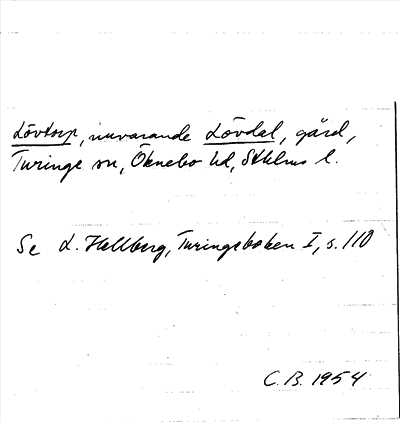 Lövtorp, nuvarande Lövdal, gård,
Turinge sn, Öknebo hd, Sthlms l.
Se L. Hallberg, Turingeboken I, s. 110
C. B. 1954